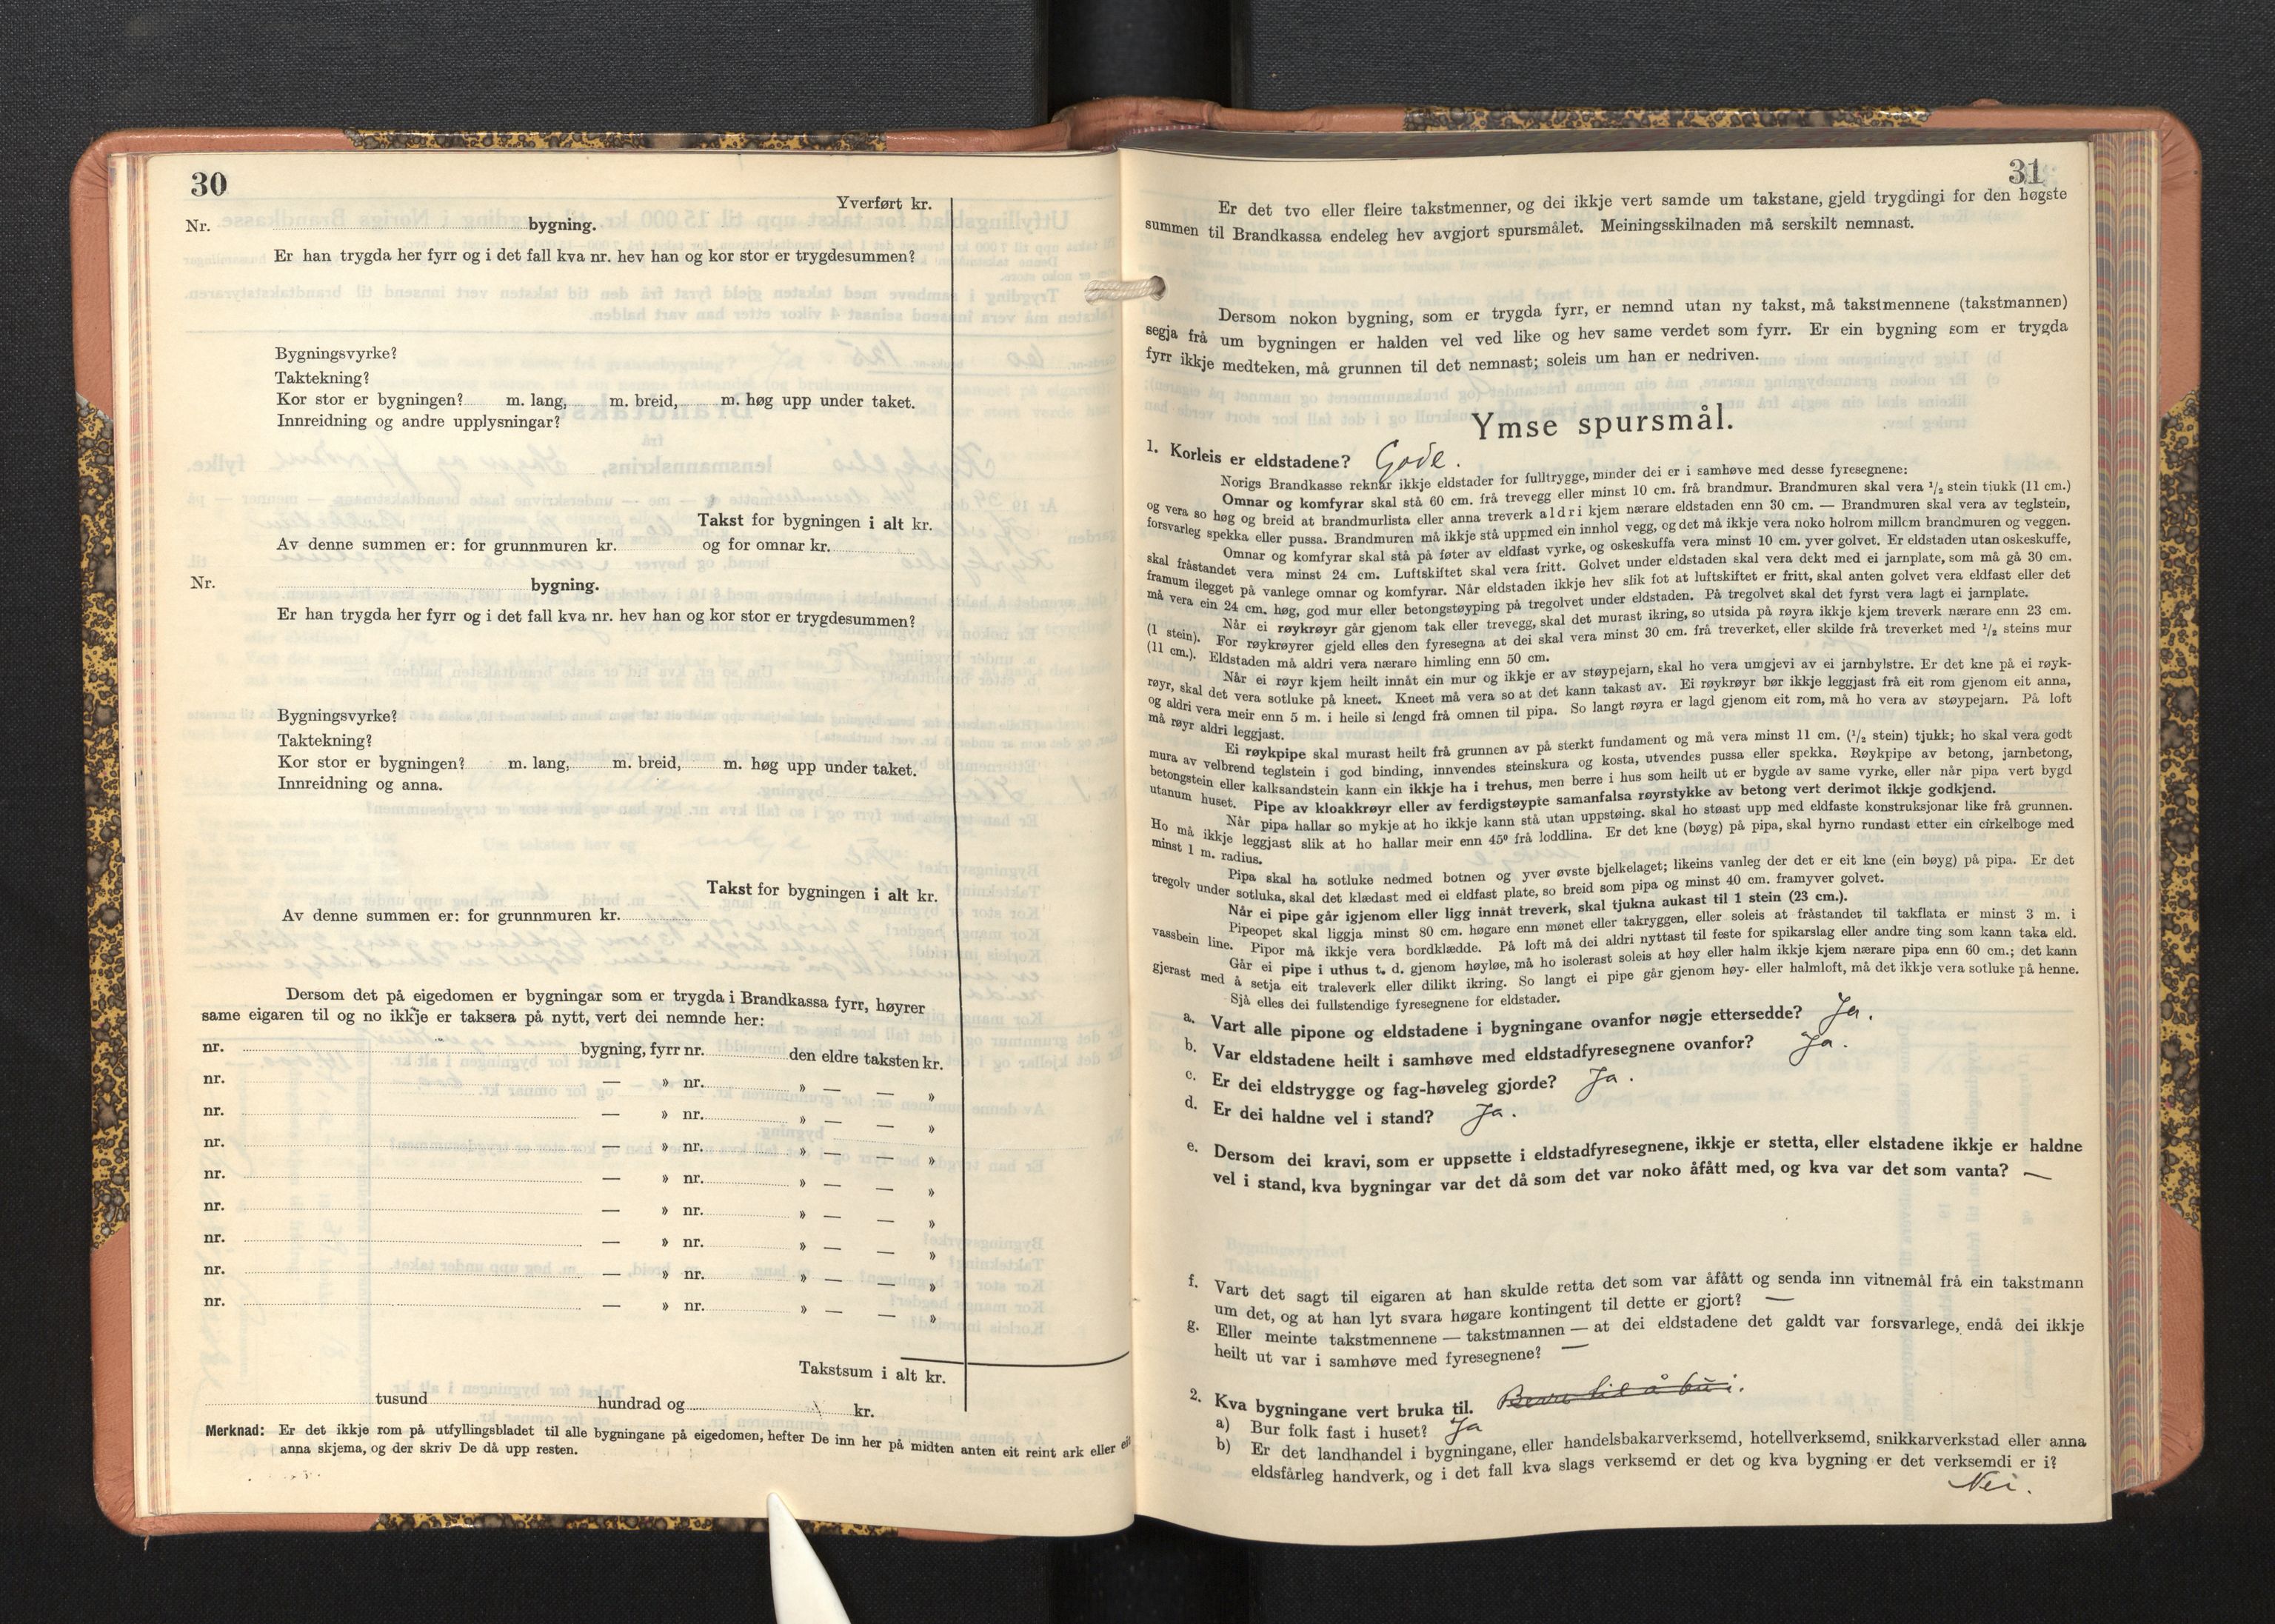 30
Yverført kr.
Nr. bygning.
Er han trygda her fyrr og i det fall kva nr. hev han og kor stor er trygdesummen?
Bygningsvyrke?
Taktekning?
Kor stor er bygningen? m. lang, m. breid, m. høg upp under taket.
Innreidning og andre upplysningar?
Takst for bygningen i alt kr.
Av denne summen er: for grunnmuren kr. og for omnar kr.
Nr. bygning.
Er han trygda her fyrr og i det fall kva nr. hev han og kor stor er trygdesummen?
Bygningsvyrke?
Taktekning?
Kor stor er bygningen? m. lang, m. breid, m. høg upp under taket.
Innreidning og anna.
Takst for bygningen i alt kr.
Av denne summen er: for grunnmuren kr.
Dersom det på eigedomen er bygningar som er trygda i Brandkassa fyrr, høyrer
same eigaren til og no ikkje er taksera på nytt, vert dei nemnde her:
nr. bygning, fyrr nr. den eldre taksten kr.
nr. — » nr. » — — »
nr. — » nr. » — — »
nr. — » nr. » — — »
nr. — » nr. » — — »
nr. — » nr. » — — »
nr. — » nr. » — — »
nr. — » nr. » — — »
nr. — » nr. » — — »
Takstsum i alt kr.
tusund hundrad og kr.
Merknad: Er det ikkje rom på utfyllingsbladet til alle bygningane på eigedomen, hefter De inn her på midten anten eit reint ark eller eit
anna skjema, og der skriv De då upp resten.
31
Er det tvo eller fleire takstmenner, og dei ikkje vert samde um takstane, gjeld trygdingi for den høgste
summen til Brandkassa endeleg hev avgjort spursmålet. Meiningsskilnaden må serskilt nemnast.
Dersom nokon bygning, som er trygda fyrr, er nemnd utan ny takst, må takstmennene (takstmannen)
segja frå um bygningen er halden vel ved like og hev same verdet som fyrr. Er ein bygning som er trygda
fyrr ikkje medteken, må grunnen til det nemnast; soleis um han er nedriven.
Ymse spursmål.
1. Korleis er eldstadene? Gode.
Norigs Brandkasse reknar ikkje eldstader for fulltrygge, minder dei er i samhøve med desse fyresegnene:
Omnar og komfyrar skal stå 60 cm. frå trevegg eller minst 10 cm. frå brandmur. Brandmuren skal vera 1/2 stein tjukk (11 cm.)
og vera so høg og breid at brandmurlista eller anna treverk aldri kjem nærare eldstaden enn 30 cm. — Brandmuren skal vera av teglstein,
forsvarleg spekka eller pussa. Brandmuren må ikkje stå uppmed ein innhol vegg, og det må ikkje vera noko holrom millom brandmuren og veggen.
Omnar og komfyrar skal stå på føter av eldfast vyrke, og oskeskuffa vera minst 10 cm. yver golvet. Er eldstaden utan oskeskuffe,
skal fråstandet vera minst 24 cm. Luftskiftet skal vera fritt. Golvet under eldstaden skal vera dekt med ei jarnplate, som må gå 30 cm.
framum ilegget på vanlege omnar og komfyrar. Når eldstaden ikkje hev slik fot at luftskiftet er fritt, skal anten golvet vera eldfast eller det
må vera ein 24 cm. høg, god mur eller betongstøyping på tregolvet under eldstaden. På tregolvet skal det fyrst vera lagt ei jarnplate.
Når ei røykrøyr går gjenom tak eller trevegg, skal det murast ikring, so utsida på røyra ikkje kjem treverk nærare enn 23 cm.
(1 stein). For røykrøyrer gjeld elles den fyresegna at dei skal vera minst 30 cm. frå treverket, eller skilde frå treverket med 1/2 steins mur
(11 cm.). Eldstaden må aldri vera nærare himling enn 50 cm.
Når ei røyr kjem heilt innåt ein mur og ikkje er av støypejarn, skal ho vera umgjevi av ei jarnhylstre. Er det kne på ei røyk-
røyr, skal det vera sotluke på kneet. Kneet må vera so at det kann takast av. Ei røykrøyr bør ikkje leggjast frå eit rom gjenom eit anna,
og aldri vera meir enn 5 m. i heile si lengd frå omnen til pipa. So langt røyra er lagd gjenom eit rom, må ho vera av støypejarn. På loft
må røyr aldri leggjast.
Ei røykpipe skal murast heilt frå grunnen av på sterkt fundament og må vera minst 11 cm. (1/2 stein) tjukk; ho skal vera godt
mura av velbrend teglstein i god binding, innvendes steinskura og kosta, utvendes pussa eller spekka. Røykpipe av betong, jarnbetong,
betongstein eller kalksandstein kann ein ikkje ha i trehus, men berre i hus som heilt ut er bygde av same vyrke, eller når pipa vert bygd
utanum huset. Pipe av kloakkrøyr eller av ferdigstøypte samanfalsa røyrstykke av betong vert derimot ikkje godkjend.
Når pipa hallar so mykje at ho ikkje kann stå utan uppstøing. skal ho støast upp med eldfaste konstruksjonar like frå grunnen.
Ho må ikkje leggjast slik at ho hallar meir enn 45° frå loddlina. Er det kne (bøyg) på pipa, skal hyrno rundast etter ein cirkelboge med
minst 1 m. radius.
Pipa skal ha sotluke nedmed botnen og yver øvste bjelkelaget; likeins vanleg der det er eit kne (ein bøyg) på pipa. Er det
tregolv under sotluka, skal det klædast med ei eldfast plate, so breid som pipa og minst 40 cm. framyver golvet.
Når ei pipe går igjenom eller ligg innåt treverk, skal tjukna aukast til 1 stein (23 cm.).
Pipeopet skal liggja minst 80 cm. høgare enn mønet eller takryggen, eller soleis at fråstandet til takflata er minst 3 m. i
vassbein line. Pipor må ikkje vera bordklædde. På loft må dei aldri nyttast til feste for spikarslag eller andre ting som kann taka eld.
Går ei pipe i uthus t. d. gjenom høyløe, må ho isolerast soleis at høy eller halm ikkje kjem nærare pipa enn 60 cm.; det kann
gjerast med å setja eit traleverk eller dilikt ikring. So langt ei pipe går gjenom høy- eller halmloft, må det ikkje vera sotluke på henne.
Sjå elles dei fullstendige fyresegnene for eldstader.
a. Vart alle pipone og eldstadene i bygningane ovanfor nøgje ettersedde? Ja.
b. Var eldstadene heilt i samhøve med eldstadfyresegnene ovanfor? Ja.
c. Er dei eldstrygge og fag-høveleg gjorde? Ja.
d. Er dei haldne vel i stand? Ja.
e. Dersom dei kravi, som er uppsette i eldstadfyresegnene, ikkje er stetta, eller elstadene ikkje er haldne
vel i stand, kva bygningar var det då som det var noko åfått med, og kva var det som vanta? —
f. Vart det sagt til eigaren at han skulde retta det som var åfått og senda inn vitnemål frå ein takstmann
um det, og at han lyt svara høgare kontingent til dette er gjort? —
g. Eller meinte takstmennene — takstmannen — at dei eldstadene det galdt var forsvarlege, endå dei ikkje
heilt ut var i samhøve med fyresegnene? —
2. Kva bygningane vert bruka til. Berre til å bu i.
a) Bur folk fast i huset? Ja
b) Er det landhandel i bygningane, eller handelsbakarverksemd, hotellverksemd, snikkarverkstad eller anna
eldsfårleg handverk, og i det fall kva slags verksemd er det og kva bygning er det verksemdi er i?
Nei.